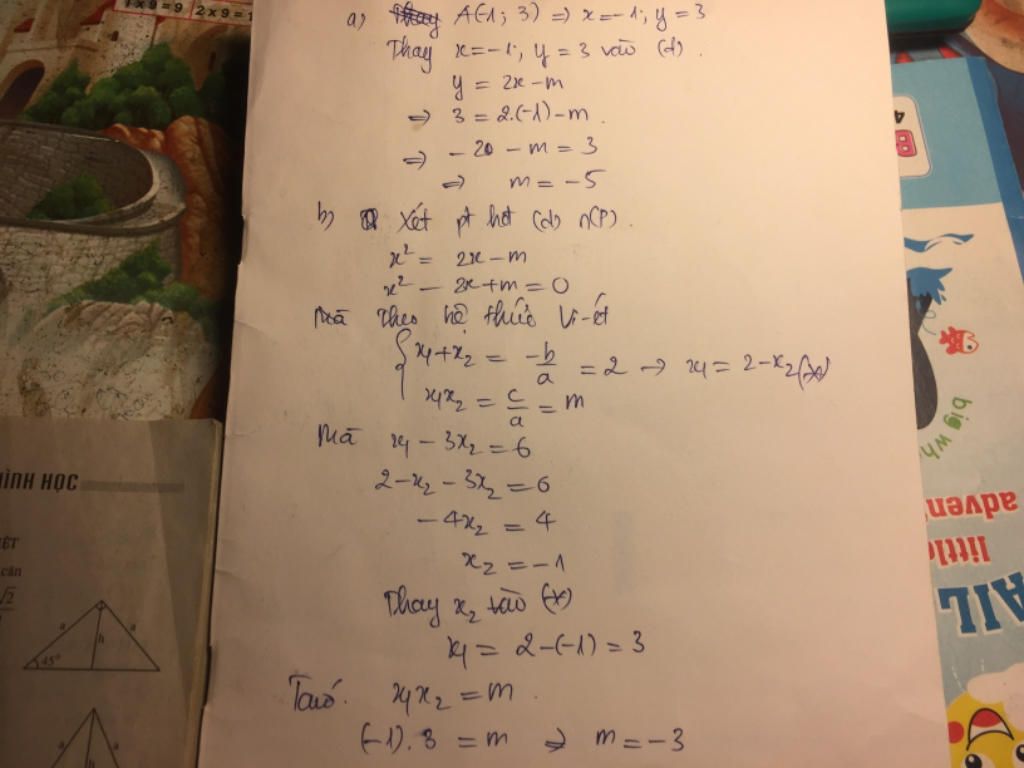 1 x 9 = 9 2 x 9 = 1
a) Thay A(-1; 3) => x=-1; y = 3
Thay x=-1; y = 3 vào (d).
y = 2x - m
=> 3 = 2.(-1) - m.
=> - 2 - m = 3
=> m = -5
b) Xét pt hđ (d) n(P).
x² = 2x - m
x² - 2x + m = 0
Mà theo hệ thức Vi-ét
{ x₁+x₂ = -b/a = 2 -> x₁ = 2-x₂(*)
x₁x₂ = c/a = m
Mà x₁ - 3x₂ = 6
2-x₂ - 3x₂ = 6
- 4x₂ = 4
x₂ = -1
Thay x₂ vào (*)
x₁ = 2-(-1) = 3
Ta có. x₁x₂ = m.
(-1). 3 = m => m = -3
ÌNH HỌC
cân
√2
a a
h
45°
a a
h
4
B
big wh
adven
little
AIL